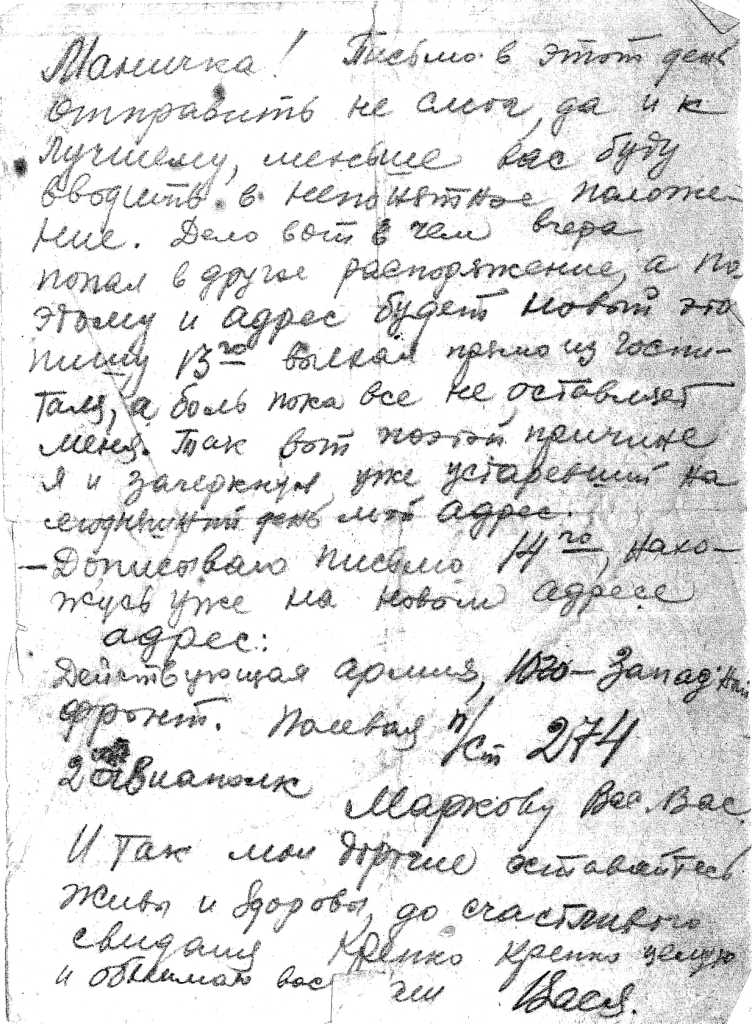 Маничка! Письмо в этот день
отправить не смог, да и к
лучшему, меньше вас буду
вводить в непонятное положе-
ние. Дело вот в чем вчера
попал в другое распоряжение, а по
этому и адрес будет новый это
пишу 13го выехал прямо из госпи-
таля, а боль пока все не оставляет
меня. Так вот поэтой причине
я и зачеркнул уже устаревший на
сегодняшний день мой адрес.
– Дописываю письмо 14го, нахо-
жусь уже на новом адресе
адрес:
Действующая армия, Юго-Западный
фронт. Полевая п/ст 274
2 авиаполк
Маркову Вас. Вас.
И так мои дорогие оставайтесь
живы и здоровы, до счастливого
свидания Крепко крепко целую
и обнимаю вас Вася.